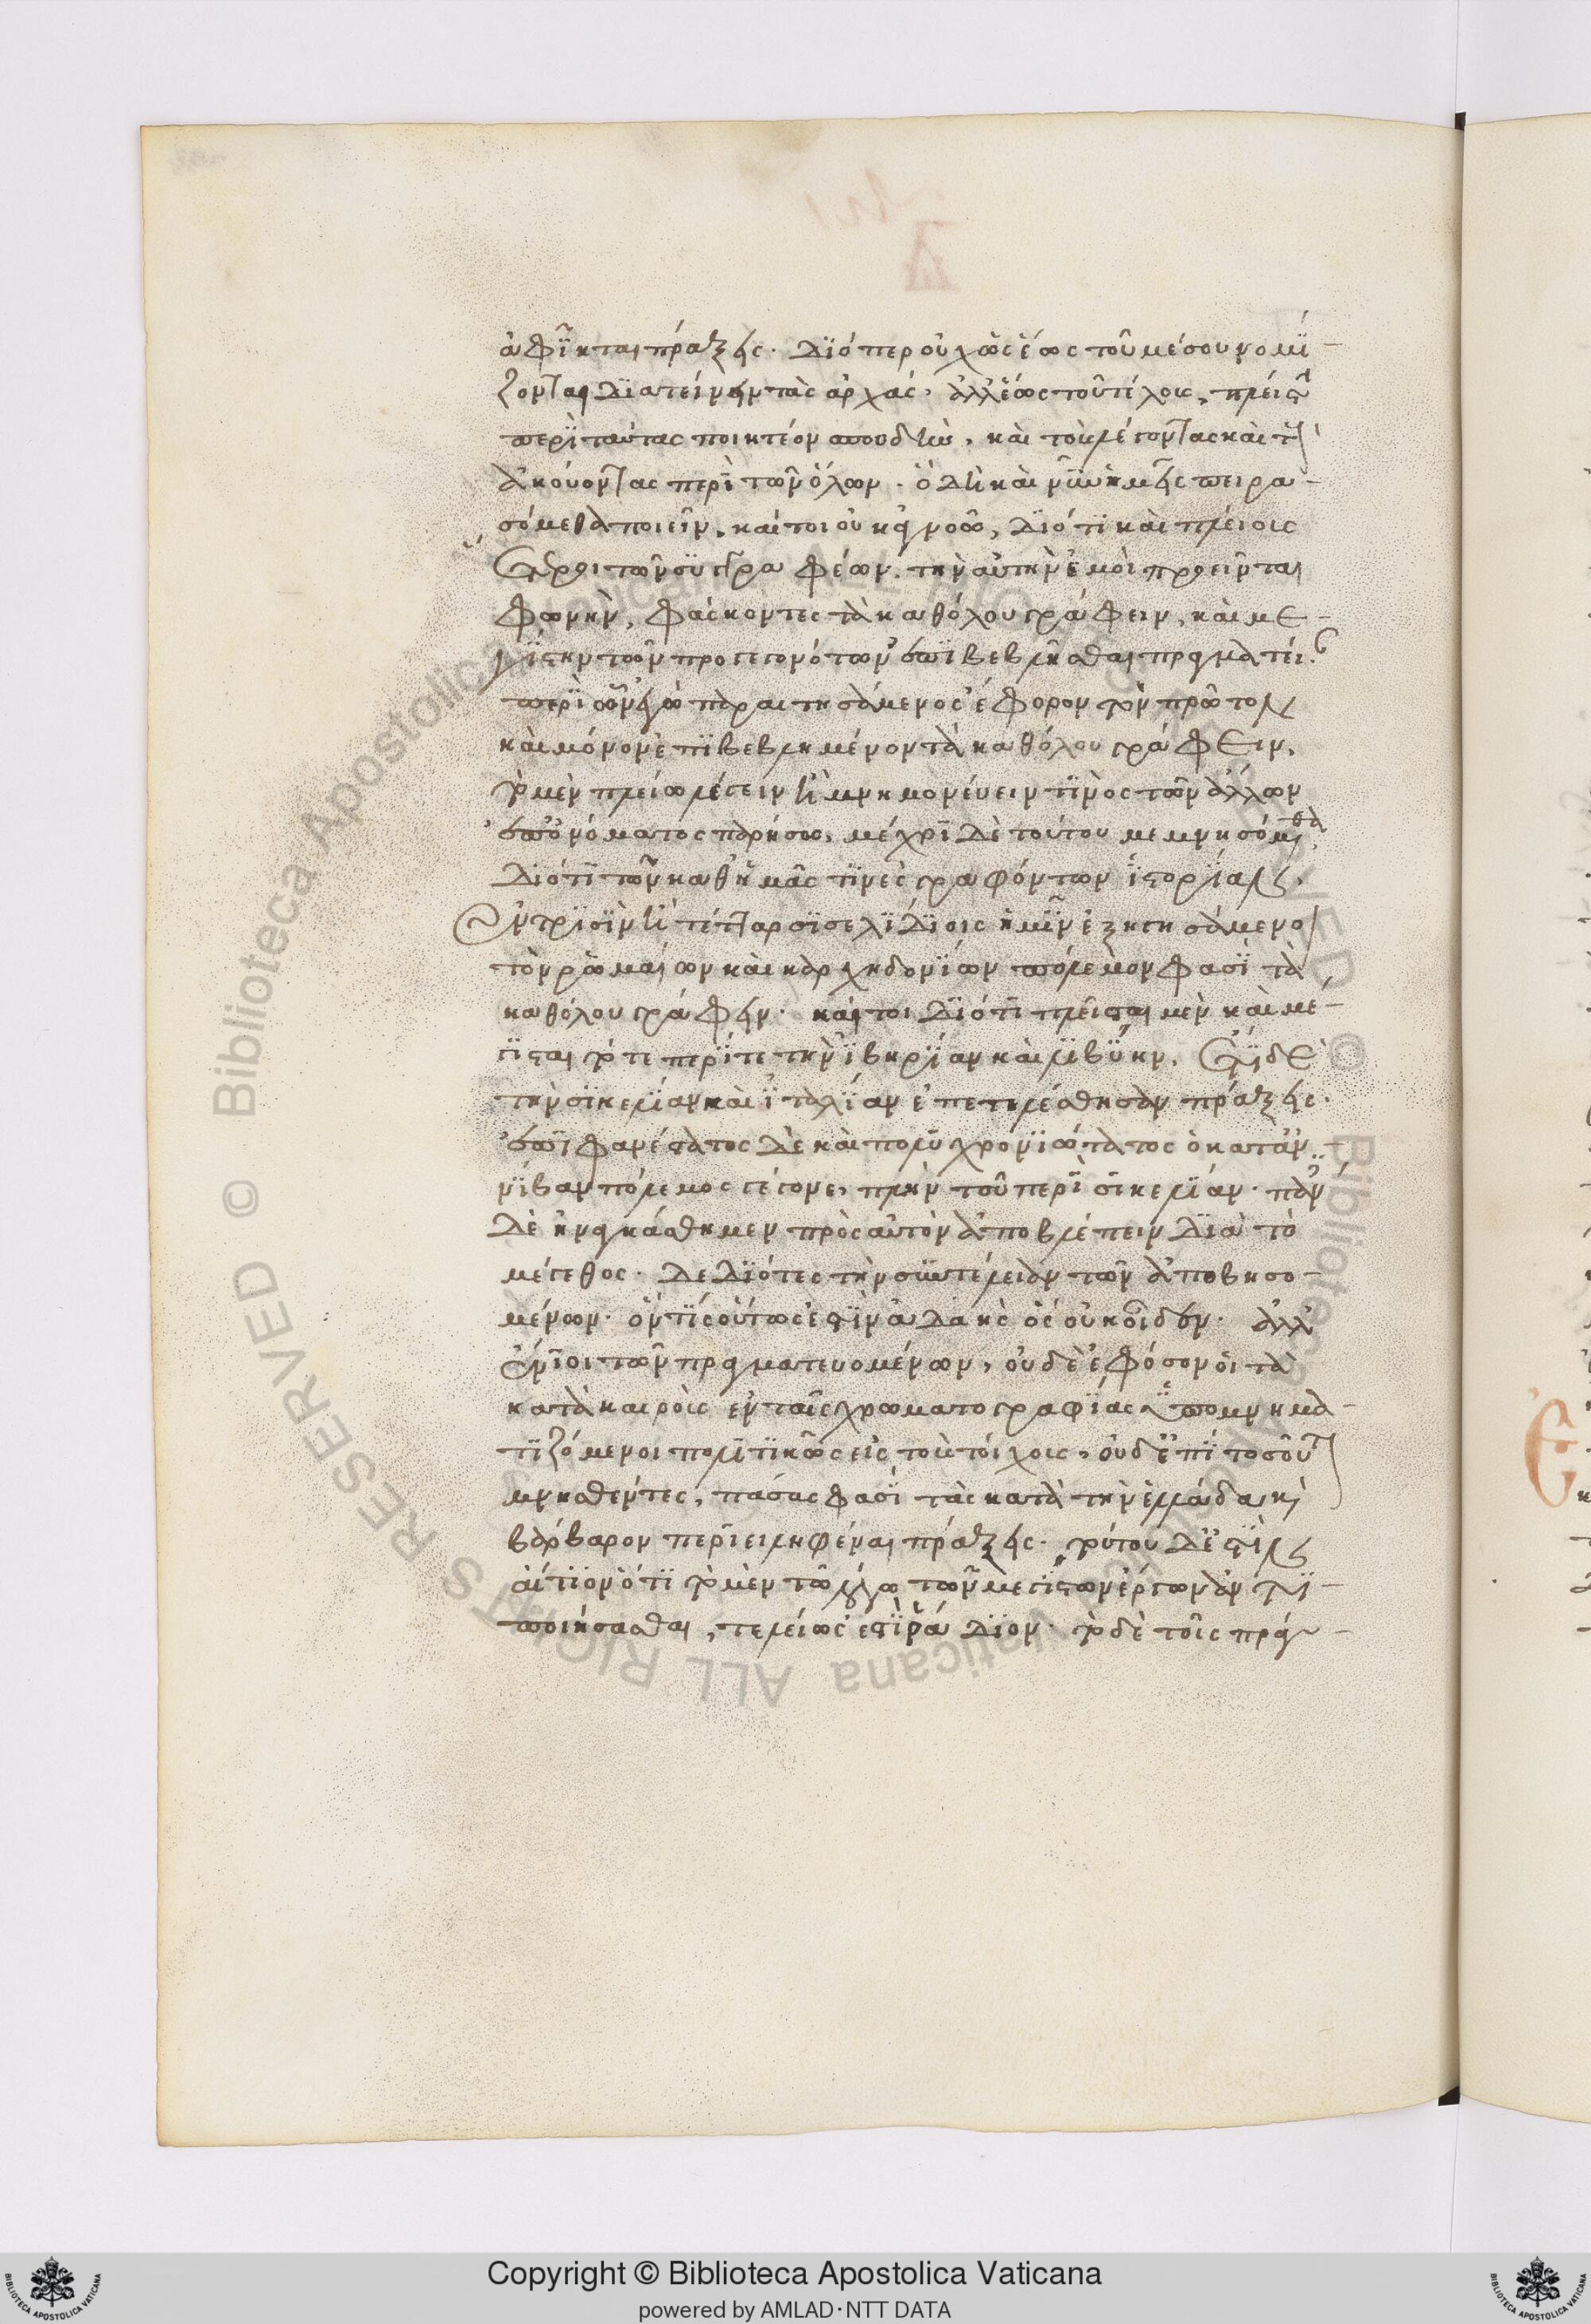 ἀφῖκται πράξεις. διόπερ οὐχ ὡς ἕως τοῦ μέσου νομί-
ζοντας διατείνειν τὰς ἀρχάς, ἀλλ' ἕως τοῦ τέλους, πλείστην
περὶ ταύτας ποιητέον σπουδὴν, καὶ τοὺς λέγοντας καὶ τοὺς
ἀκούοντας περὶ τῶν ὅλων. ὃ δὴ καὶ νῦν ἡμεῖς πειρα-
σόμεθα ποιεῖν. καίτοι οὐκ ἀγνοῶ, διότι καὶ πλείους
ἕτεροι τῶν συγγραφέων, τὴν αὐτὴν ἐμοὶ προεῖνται
φωνὴν, φάσκοντες τὰ καθόλου γράφειν, καὶ με-
γίστην τῶν προγεγονότων ἐπιβεβλῆσθαι πραγματεί.
περὶ ὧν ἐγὼ παραιτησάμενος ἔφορον τὸν πρῶτον
καὶ μόνον ἐπιβεβλημένον τὰ καθόλου γράφειν,
τὸ μὲν πλείω λέγειν ἢ μνημονεύειν τινὸς τῶν ἄλλων
ἐπ' ὀνόματος παρήσω, μέχρι δὲ τούτου μεμνησόμεθα
διότι τῶν καθ' ἡμᾶς τινὲς γραφόντων ἱστορίαν,
ἐν τρισὶν ἢ τέτταρσι σελίδίοις ἡμῖν ἐξηγησάμενοι
τὸν ῥωμαίων καὶ καρχηδονίων πόλεμον φασὶ τὰ
καθόλου γράφειν. καίτοι διότι πλεῖσται μὲν καὶ μέ-
γισται τότε περί τε τὴν ἰβηρίαν καὶ λιβύην, ἔτι δὲ
τὴν σικελίαν καὶ ἰταλίαν ἐπετελέσθησαν πράξεις.
ἐπιφανέστατος δὲ καὶ πολυχρονιώτατος ὁ κατ' ἀν-
νίβαν πόλεμος γέγονε, πλὴν τοῦ περὶ σικελίαν. πάν
δὲ ἠναγκάσθημεν πρὸς αὐτὸν ἀποβλέπειν διὰ τὸ
μέγεθος. δεδιότες τὴν συντέλειαν τῶν ἀποβησο-
μένων. ὅν τίς οὕτως ἐστὶν ἀδαὴς ὃς οὐκ οἶδεν. ἀλλ'
ἔνιοι τῶν πραγματευομένων, οὐδὲ ἐφόσον οἱ τὰ
κατὰ καιροὺς ἐν ταῖς χρωματογραφίαις ὑπομνημα-
τιζόμενοι πολιτικῶς εἰς τοὺς τοίχους, οὐδ' ἐπὶ τοσοῦτον
μνησθέντες, πάσας φασὶ τὰς κατὰ τὴν ἑλλάδα καὶ
βάρβαρον περιειληφέναι πράξεις. τούτου δ' ἐστὶν
αἴτιον ὅτι τὸ μὲν τῷ λόγῳ τῶν μεγίστων ἔργων ἀντι-
ποιήσασθαι, τελείως ἐστὶ ῥάδιον. τὸ δὲ τοῖς πρά-